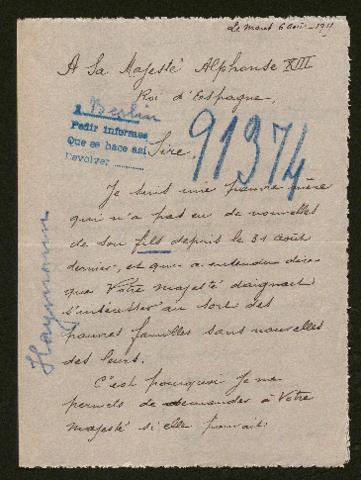 Le Mans 6 Août - 19
A Sa Majesté Alphonse XIII
Roi d'Espagne,
A Berlin
Pedir informes
Que se hace así
Devolver
Sire,
91374
Je suis une pauvre mère
qui n'a pas eu de nouvelles
de son fils depuis le 31 août
dernier, et qui a entendu dire
que Votre majesté daignait
s'intéresser au sort des
pauvres familles sans nouvelles
des leurs.
C'est pourquoi je me
permets de demander à Votre
majesté si elle pouvait
Haymann